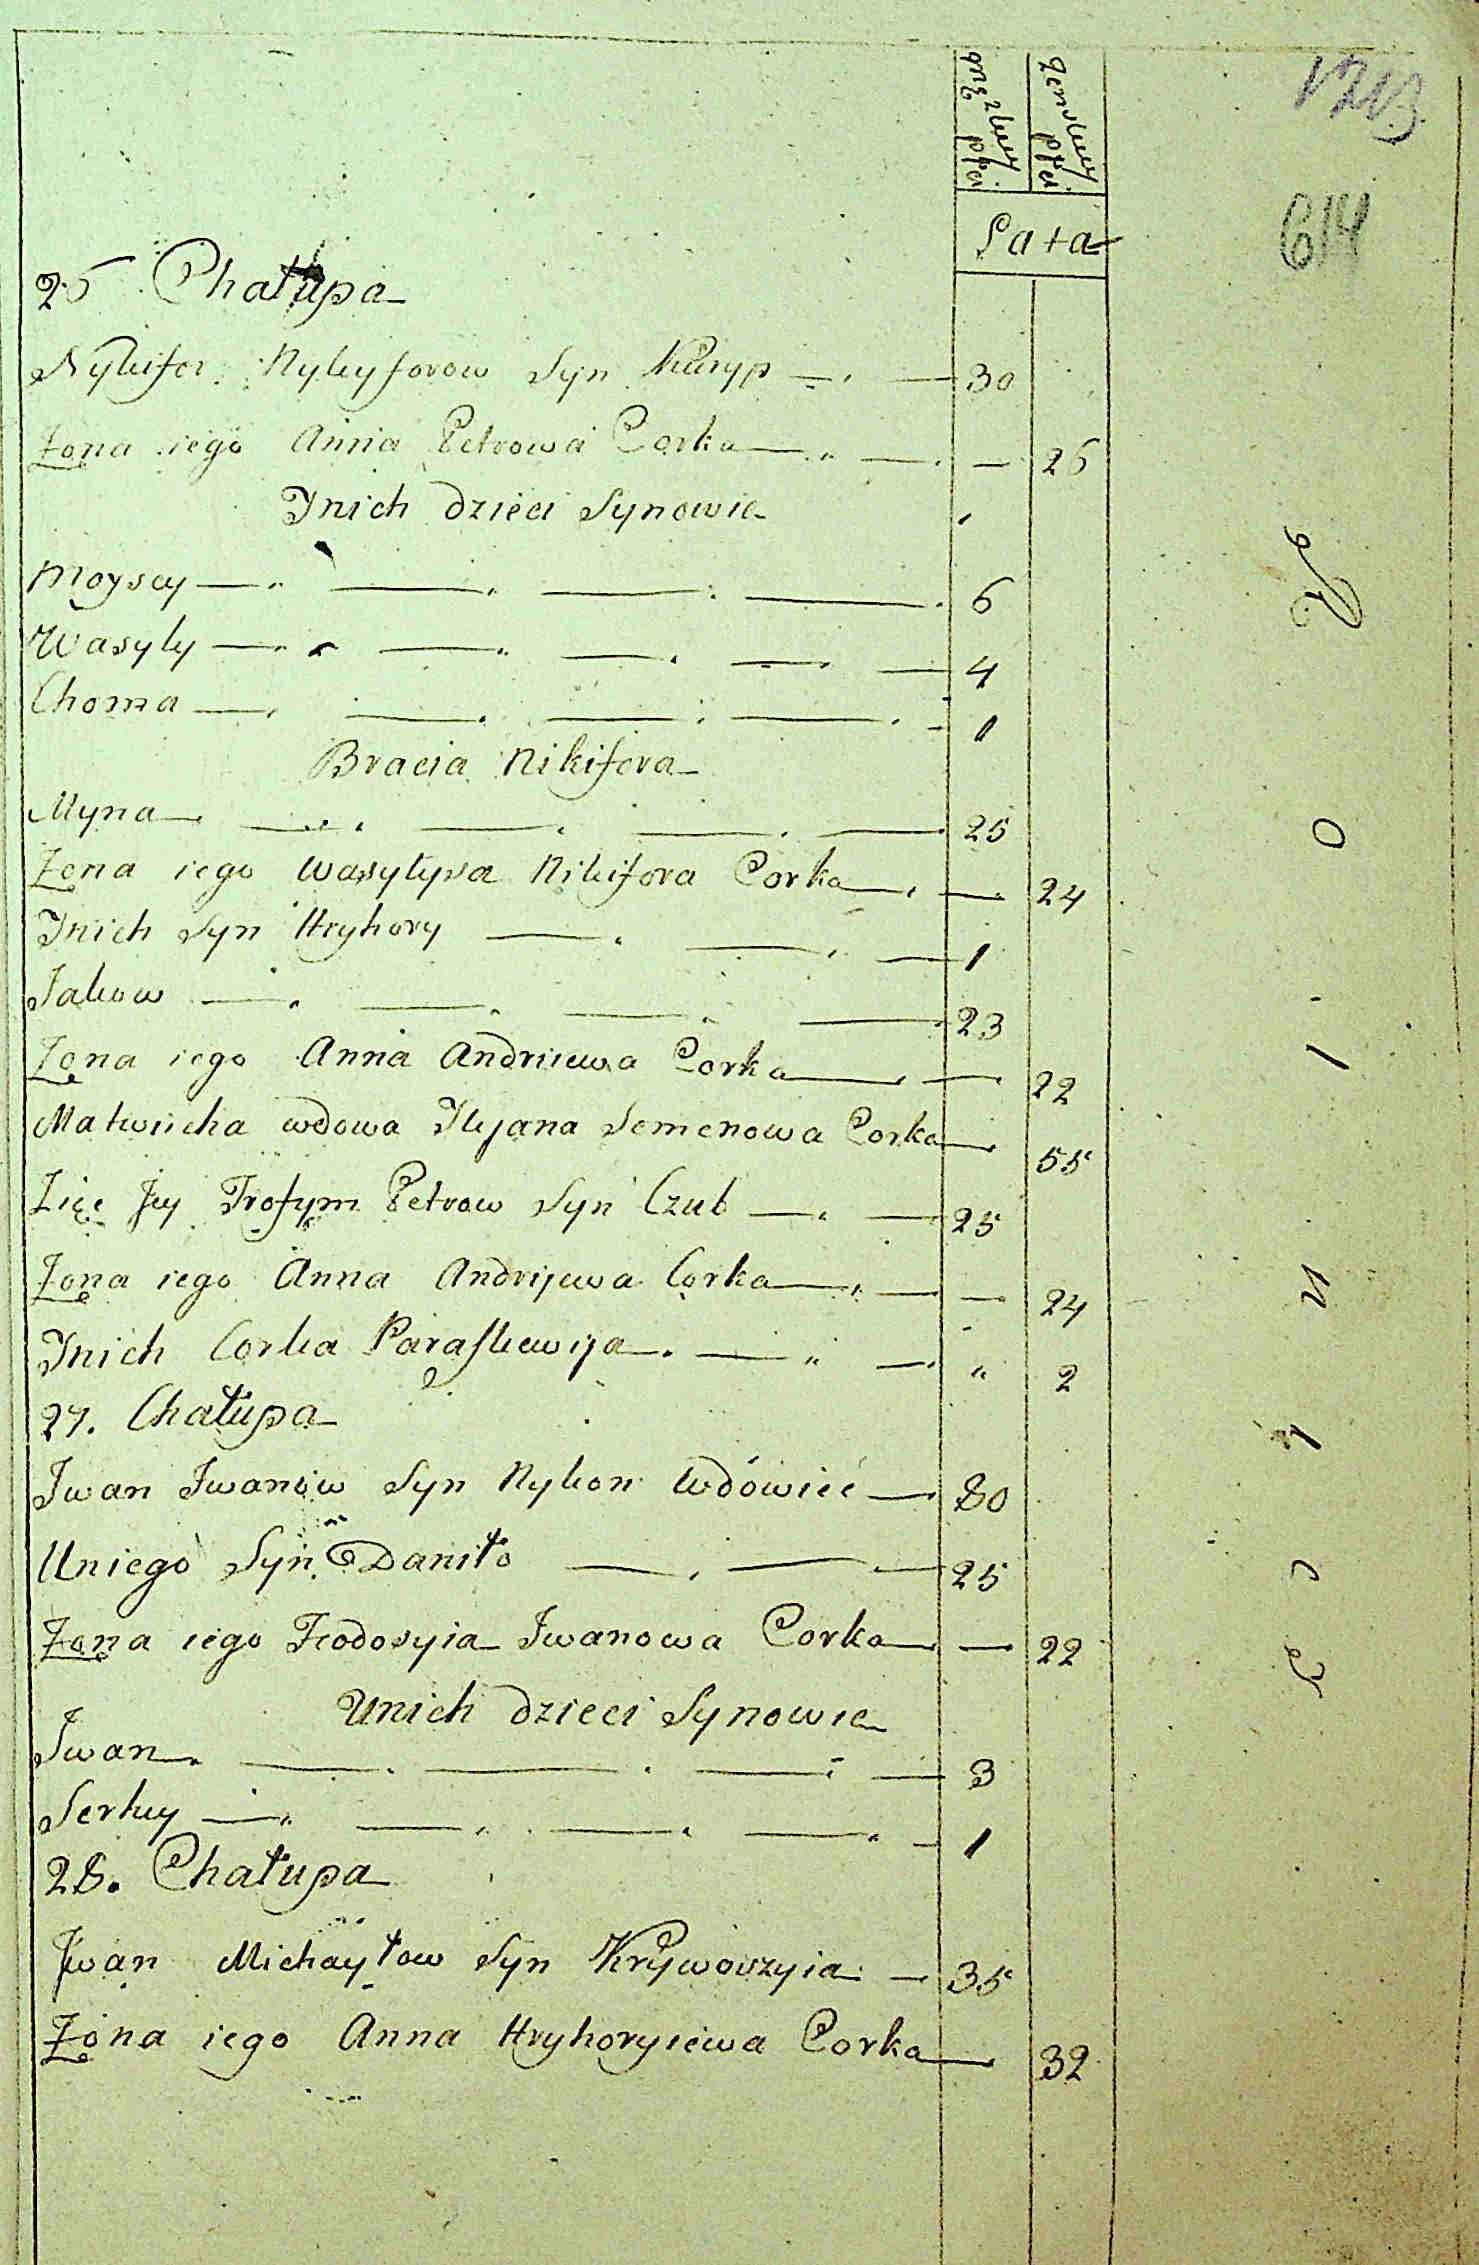 męzkiey płci
zenskiey płci
1213
614
Lata
26 Chałupa
Nykifor Nykyforow Syn Kuryp 30
Zona iego Anna Petrowa Corka 26
Jnich dzieci Synowie
Moysey 6
Wasyly 4
Choma 1
Bracia Nikifora
Myna 25
Zona iego Wasylysa Nikifora Corka 24
Jnich Syn Hryhory 1
Jakow 23
Zona iego Anna Andriiewa Corka 22
Matwiicha wdowa Ilyana Semenowa Corka 55
Zięc Jey Trofym Petrow Syn Czub 25
Zona iego Anna Andrijewa Corka 24
Jnich Corka Paraskewija 2
27. Chałupa
Jwan Jwanow Syn Nykon Wdowiec 80
Uniego Syn Daniło 25
Zona iego Feodosyia Jwanowa Corka 22
Unich dzieci Synowie
Jwan 3
Serhey 1
28. Chałupa
Jwan Michayłow Syn Krywoszyia 35
Zona iego Anna Hryhoryiewa Corka 32